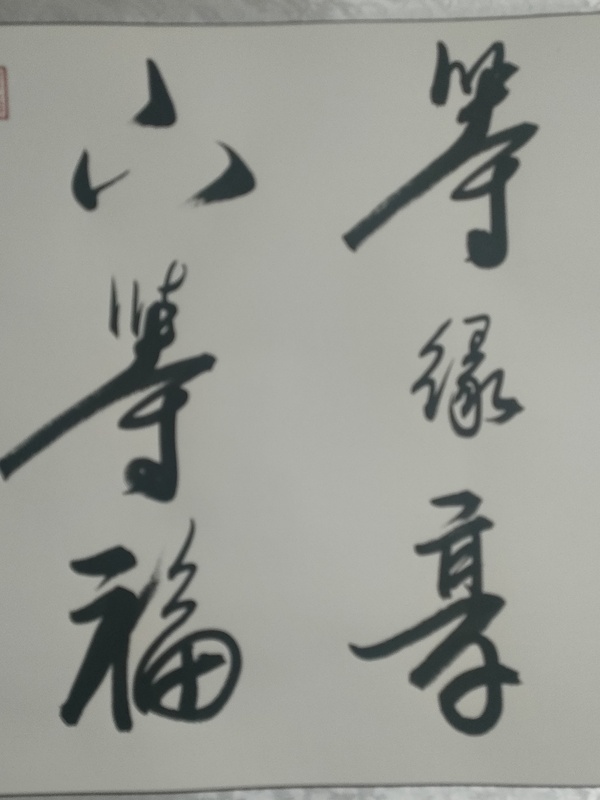 等缘享
下等福